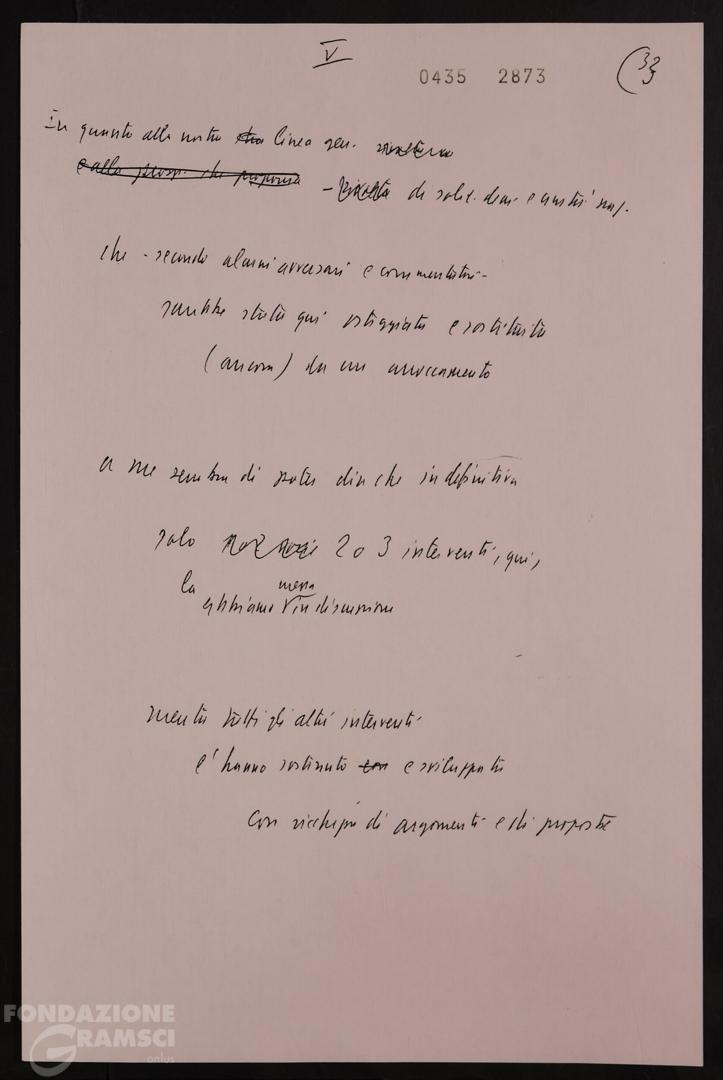 V
0435 2873
33
In quanto alla nostra linea gen.
e alla prosp. che proponia
- di solid. dem. e unità naz.
che - secondo alcuni avversari e commentatori -
sarebbe stata qui osteggiata e sostituita
(ancora) da un arroccamento
a me sembra di poter dire che in definitiva
solo 2 o 3 interventi, qui,
la abbiamo messa in discussione
mentre tutti gli altri interventi
l'hanno sostenuto e sviluppata
con ricchezza di argomenti e di proposte
FONDAZIONE
GRAMSCI
onlus